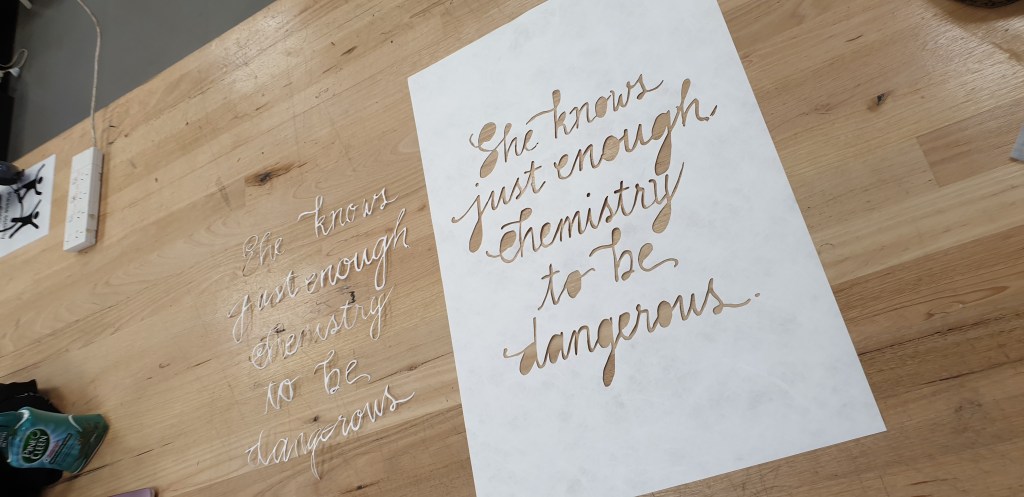 She knows
just enough
chemistry
to be
dangerous
She knows
just enough
chemistry
to be
dangerous.